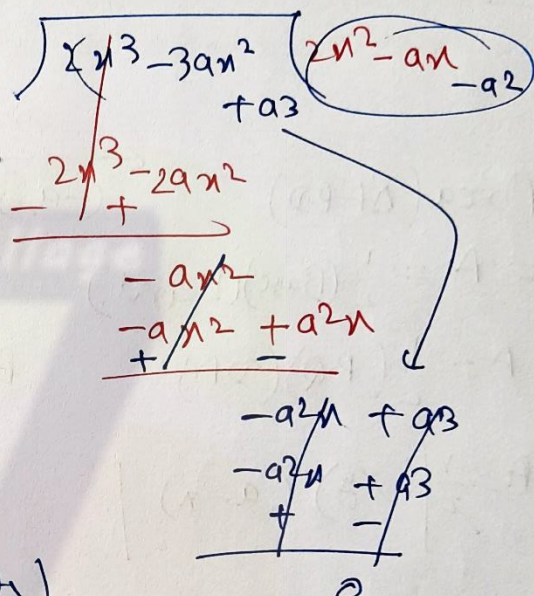 2x3 - 3ax2 2x2 - ax
+a3 -a2
2x3 - 2ax2
- +
-ax2
-ax2 +a2x
+ -
-a2x + a3
-a2x + a3
+ -
0